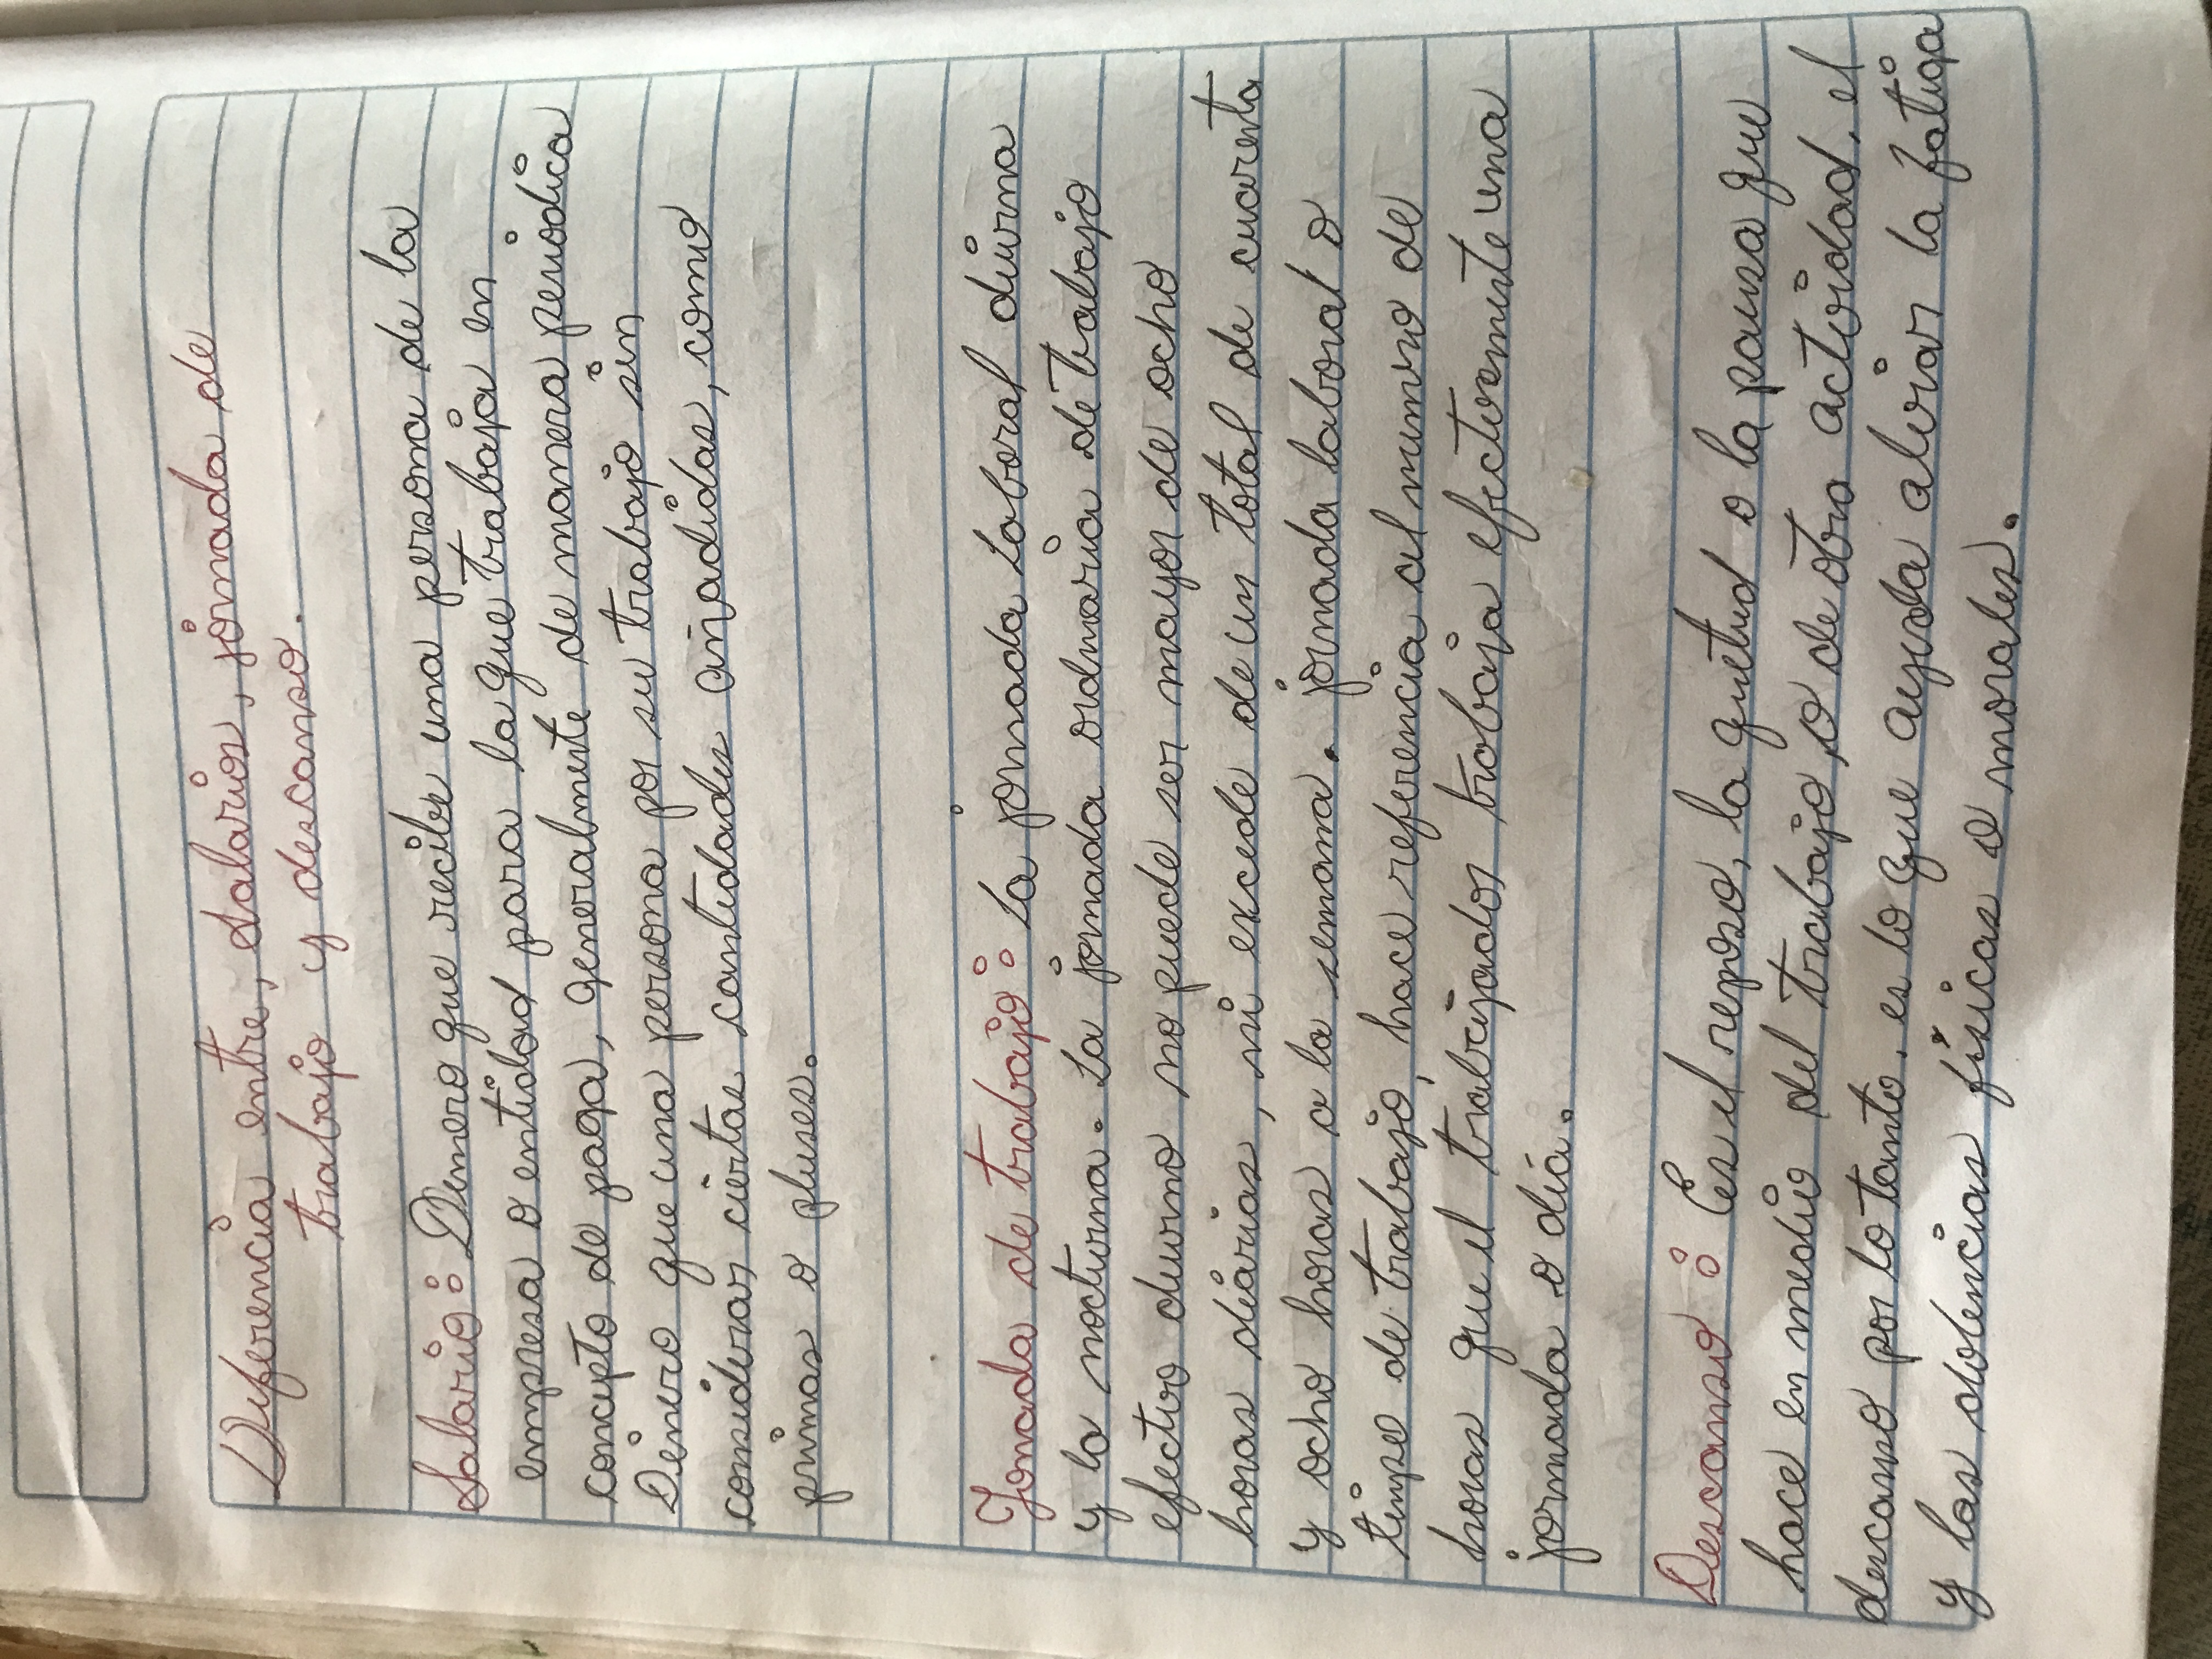 Diferencia entre, salarios, jornada de
trabajo y descanso.
Salario: Dinero que recibe una persona de la
empresa o entidad para la que trabaja en
concepto de paga, generalmente de manera periodica
Dinero que una persona por su trabajo sin
considerar ciertas cantidades añadidas, como
primas o pluses.
Jornada de trabajo: La jornada laboral diurna
y la nocturna. La jornada ordinaria de trabajo
efectivo diurno no puede ser mayor de ocho
horas diarias, ni excede de un total de cuarenta
y ocho horas a la semana. jornada laboral o
timpo de trabajo, hace referencia al numero de
horas que el trabajador trabaja efectivamente una
jornada o día.
Descanso: Es el reposo, la quietud o la pausa que
hace en medio del trabajo o de otra actividad, el
descanso por lo tanto, es lo que ayuda aliviar la fatiga
y las dolencias físicas o morales.